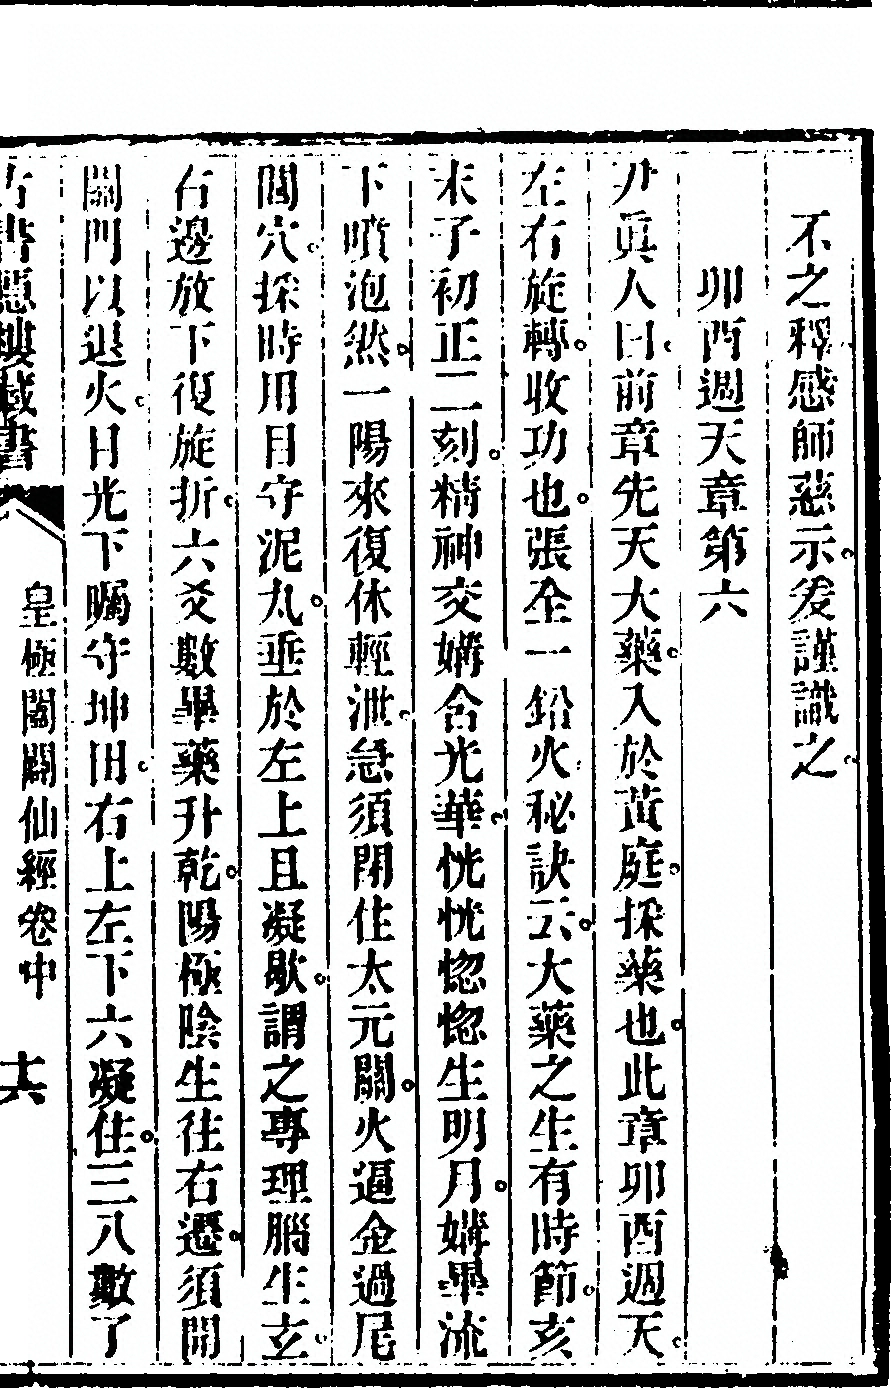 不之釋感師慈示後謹識之。
卯酉週天章第六
尹眞人曰。前章先天大藥。入於黃庭。採藥也。此章卯酉週天。
左右旋轉。收功也。張全一鉛火秘訣云。大藥之生有時節。亥
末子初正二刻。精神交媾合光華。恍恍惚惚生明月。媾畢流
下噴泡然。一陽來復休輕泄。急須閉住太元關。火逼金過尾
閭穴。採時用目守泥丸。垂於左上且凝歇。謂之專理腦生玄。
右邊放下復旋折。六爻數畢藥升乾。陽極陰生往右遷。須開
關門以退火。目光下矚守坤田。右上左下六凝住。三八數了
古書隱樓藏書
皇極闔闢仙經卷中
十六